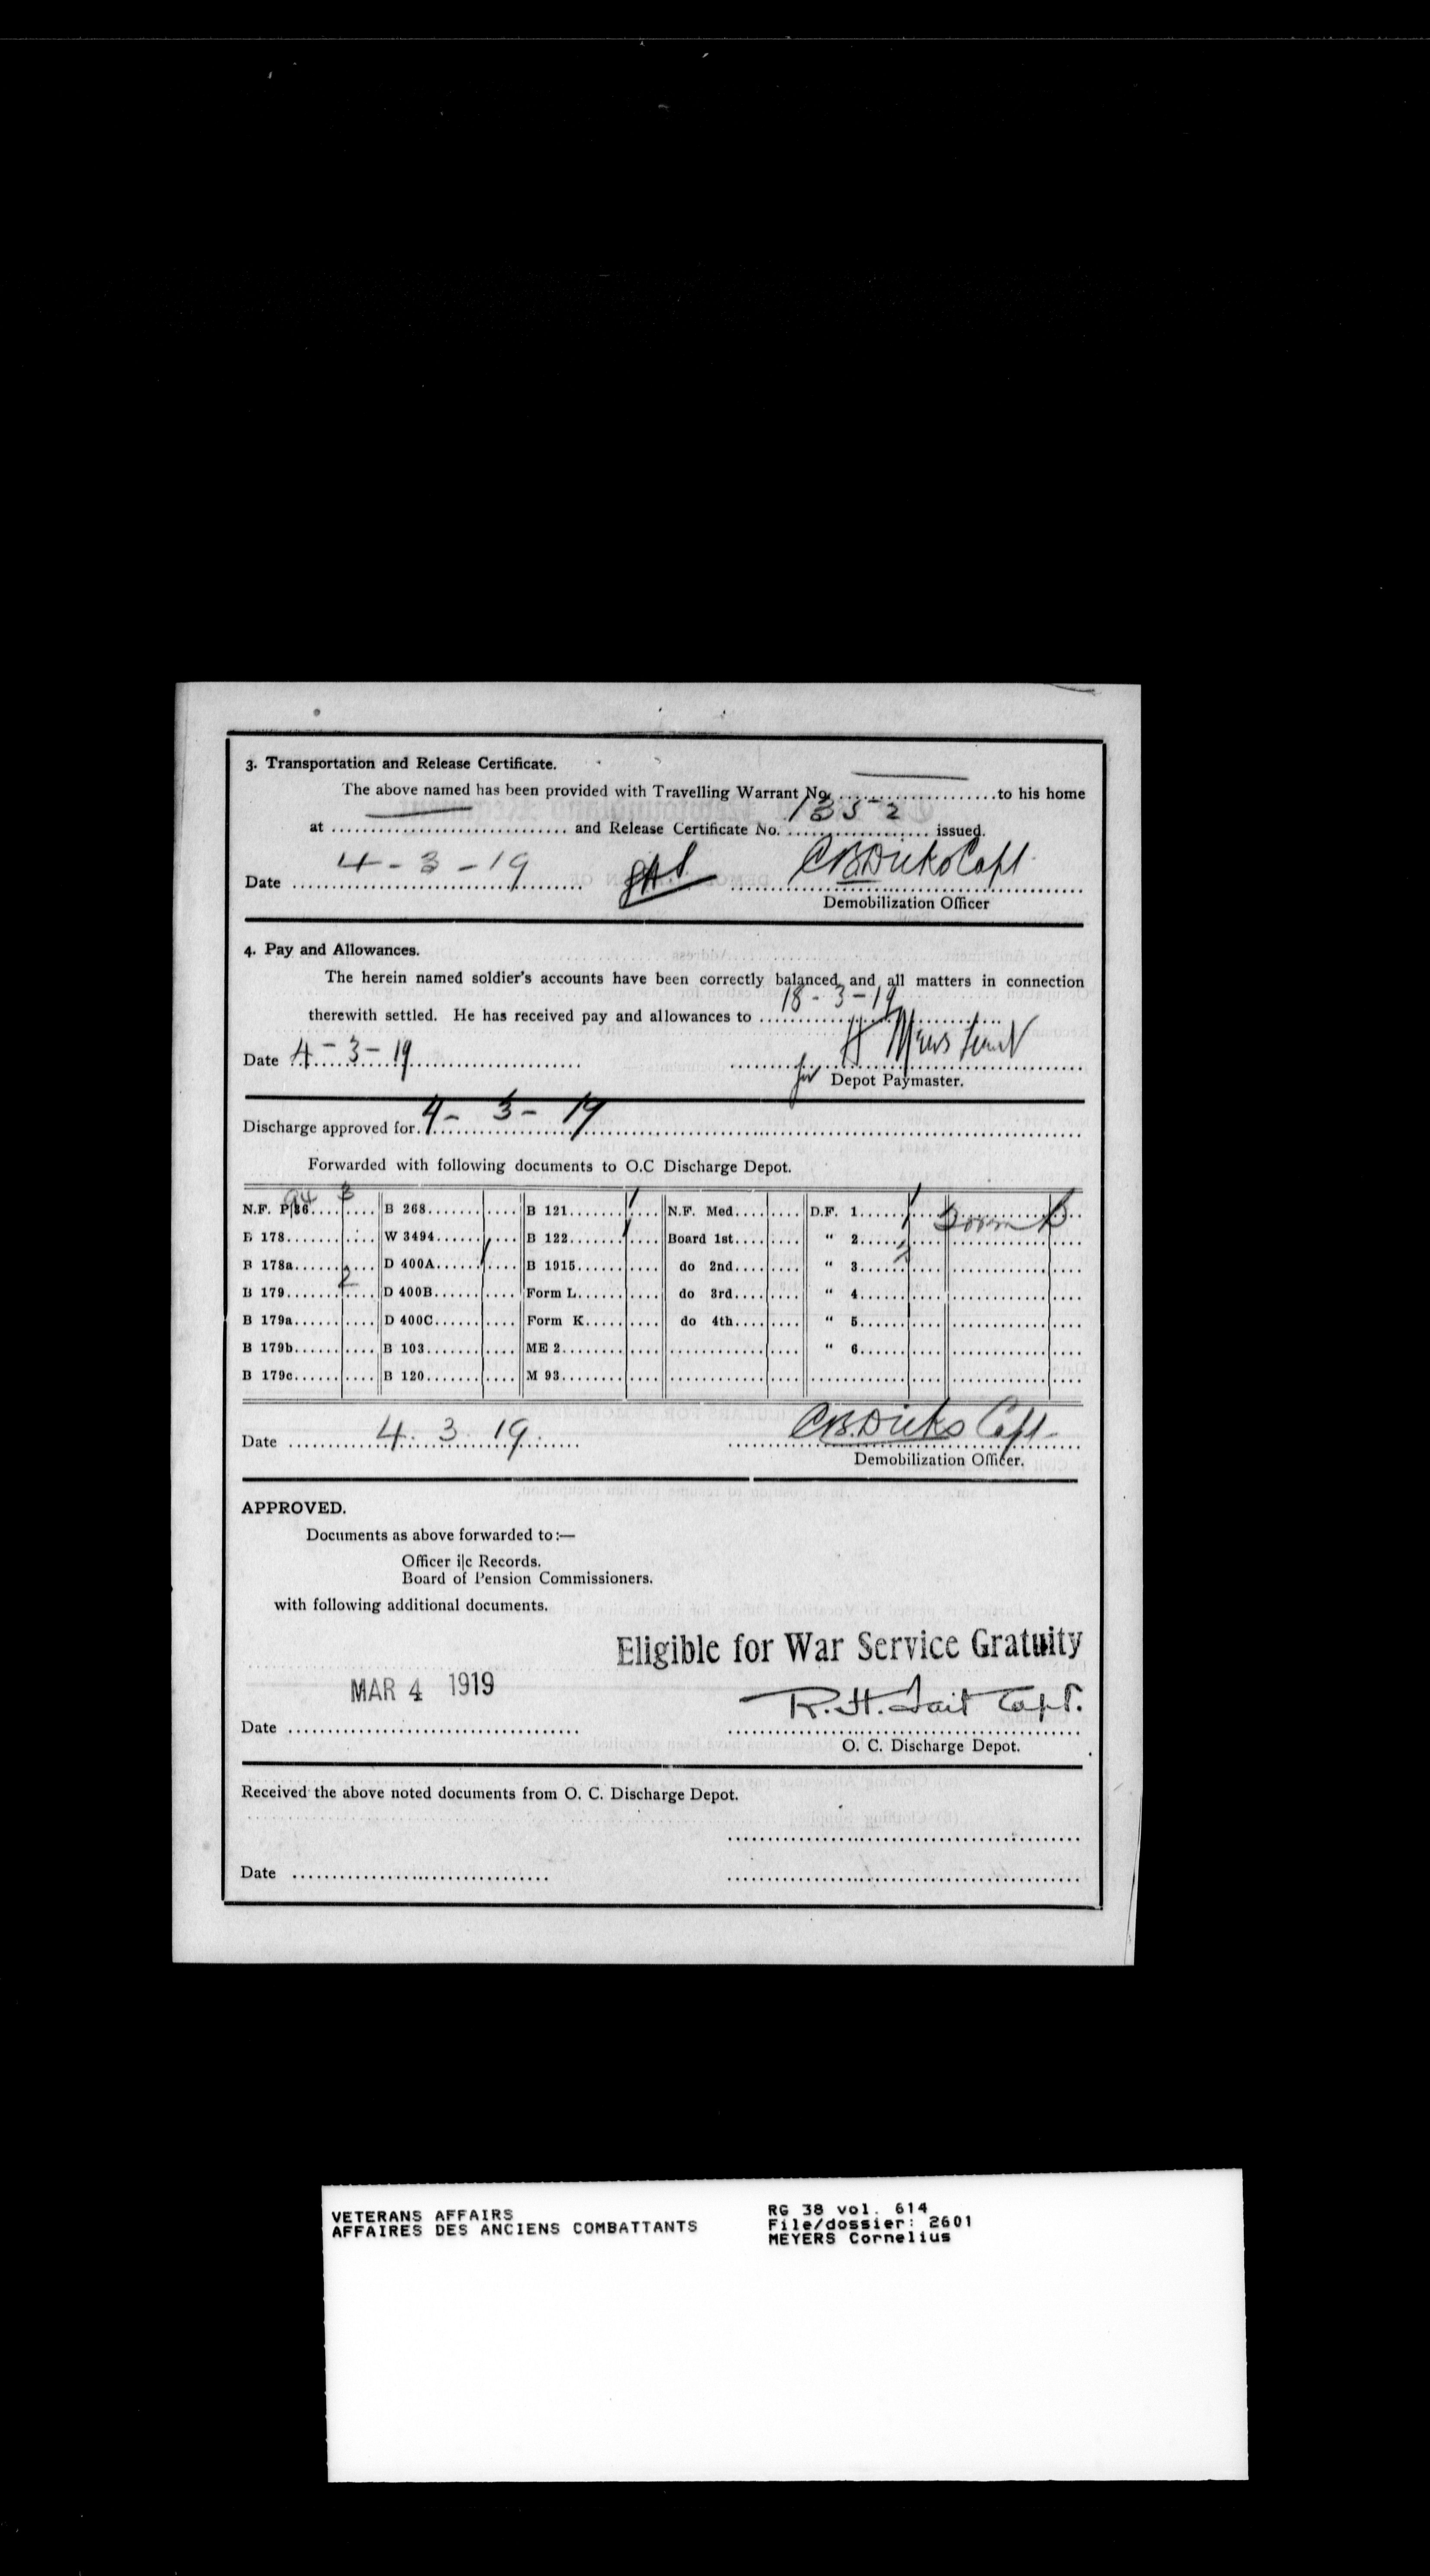 3. Transportation and Release Certificate.
The above named has been provided with Travelling Warrant No. .................... to his home
at .............................. and Release Certificate No. 1352 issued.
Date 4-3-19 C B Dicks Capt
Demobilization Officer
4. Pay and Allowances.
The herein named soldier's accounts have been correctly balanced and all matters in connection
therewith settled. He has received pay and allowances to 18-3-19
Date 4-3-19 H Mews Lieut
for Depot Paymaster.
Discharge approved for 4-3-19
Forwarded with following documents to O.C Discharge Depot.
N.F. P|36 3 B 268 B 121 1 N.F. Med. D.F. 1 1 Form B
B 178 W 3494 B 122 1 Board 1st " 2 1
B 178a D 400A 1 B 1915 do 2nd " 3 2
B 179 2 D 400B Form L do 3rd " 4
B 179a D 400C Form K do 4th " 5
B 179b B 103 ME 2 " 6
B 179c B 120 M 93
Date 4.3.19. C B Dicks Capt
Demobilization Officer.
APPROVED.
Documents as above forwarded to:—
Officer i|c Records.
Board of Pension Commissioners.
with following additional documents.
Eligible for War Service Gratuity
Date MAR 4 1919 R. H. Tait Capt.
O. C. Discharge Depot.
Received the above noted documents from O. C. Discharge Depot.
Date
VETERANS AFFAIRS
AFFAIRES DES ANCIENS COMBATTANTS
RG 38 vol. 614
File/dossier: 2601
MEYERS Cornelius